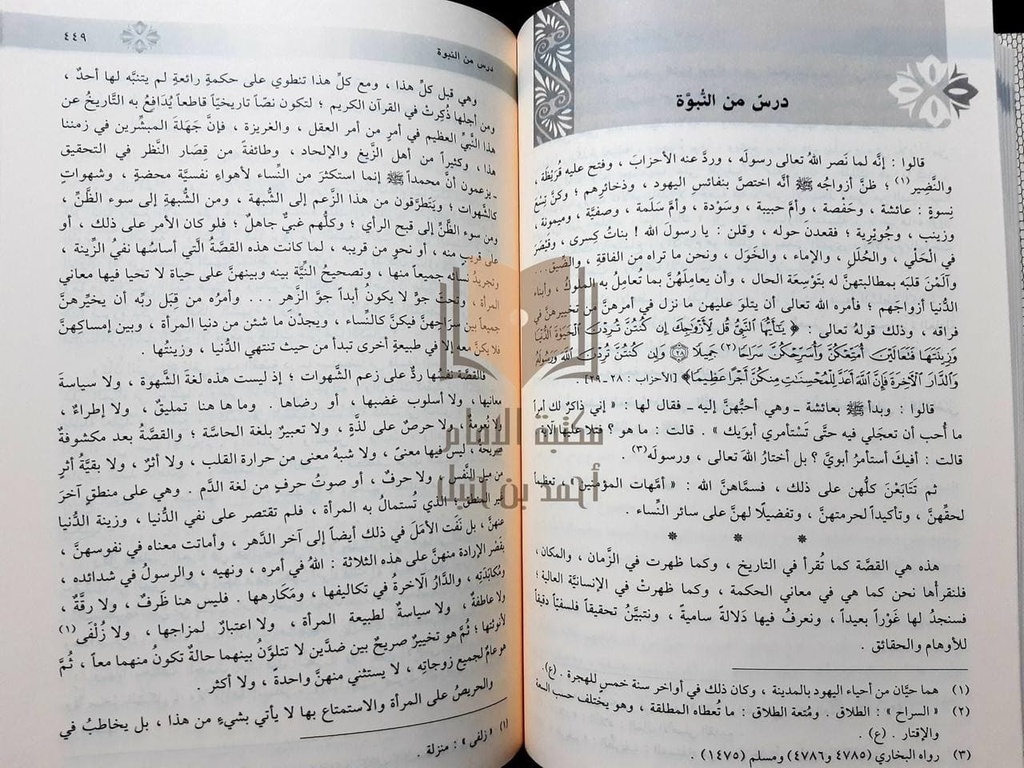 درسٌ من النُّبوَّة
قالوا : إنَّه لما نَصر اللهُ تعالى رسولَه ، وردَّ عنه الأحزابَ ، وفتح عليه قُرَيْظة ،
والنَّضِير (١) ؛ ظنَّ أزواجُه ﷺ أنَّه اختصَّ بنفائسِ اليهود ، وذخائرِهم ؛ وكنَّ تِسْعَ
نِسوةٍ : عائشة ، وحَفْصة ، وأمَّ حبيبة ، وسَوْدة ، وأمَّ سَلَمة ، وصفيَّة ، وميمونة ،
وزينب ، وجُوَيْرِية ؛ فقعدن حوله ، وقلن : يا رسولَ الله ! بناتُ كِسرى ، وقَيْصَرَ
في الحَلْي ، والحُلَلِ ، والإماءِ ، والخَوَل ، ونحن ما تراه من الفاقةِ ، والضِّيق . . .
وآلَمْنَ قلبَه بمطالبتهنَّ له بتَوْسِعة الحال ، وأن يعاملَهنَّ بما تُعامِلُ به الملوكُ ، وأبناء
الدُّنيا أزواجَهم ؛ فأمره اللهُ تعالى أن يتلوَ عليهن ما نزل في أمرهنَّ من تخييرهنَّ في
فراقه ، وذلك قولهُ تعالى : ﴿ يَٰٓأَيُّهَا ٱلنَّبِىُّ قُل لِّأَزْوَٰجِكَ إِن كُنتُنَّ تُرِدْنَ ٱلْحَيَوٰةَ ٱلدُّنْيَا
وَزِينَتَهَا فَتَعَالَيْنَ أُمَتِّعْكُنَّ وَأُسَرِّحْكُنَّ سَرَاحًا (٢) جَمِيلًا ۝٢٨ وَإِن كُنتُنَّ تُرِدْنَ ٱللَّهَ وَرَسُولَهُۥ
وَٱلدَّارَ ٱلْءَاخِرَةَ فَإِنَّ ٱللَّهَ أَعَدَّ لِلْمُحْسِنَٰتِ مِنكُنَّ أَجْرًا عَظِيمًا ﴾ [الأحزاب : ٢٨ - ٢٩] .
قالوا : وبدأ ﷺ بعائشة ـ وهي أحبُّهنَّ إليه ـ فقال لها : « إني ذاكرٌ لك أمراً
ما أُحب أن تعجَلي فيه حتَّى تَسْتأمري أبوَيك » . قالت : ما هو ؟ فتلا عليها الآية .
قالت : أفيكَ أستأمرُ أبويَّ ؟ بل أختارُ اللهَ تعالى ، ورسولَه(٣) .
ثم تَتَابَعْنَ كلُّهن على ذلك ، فسمَّاهنَّ الله : « أمَّهات المؤمنين » ، تعظيماً
لحقِّهنَّ ، وتأكيداً لحرمتهنَّ ، وتفضيلًا لهنَّ على سائر النِّساء .
* * *
هذه هي القصَّة كما تُقرأ في التاريخ ، وكما ظهرت في الزَّمان ، والمكان ،
فلنقرأها نحن كما هي في معاني الحكمة ، وكما ظهرتْ في الإنسانيَّة العالية ؛
فسنجدُ لها غَوْراً بعيداً ، ونعرفُ فيها دَلالةً سامية ، ونتبيَّنُ تحقيقاً فلسفيّاً دقيقاً
للأوهام والحقائق .
(١) هما حيَّان من أحياء اليهود بالمدينة ، وكان ذلك في أواخر سنة خمسٍ للهجرة . (ع) .
(٢) « السراح » : الطلاق . ومُتعة الطلاق : ما تُعطاه المطلقة ، وهو يختلف حسب السعة
والإقتار . (ع) .
(٣) رواه البخاري (٤٧٨٥ و ٤٧٨٦) ومسلم (١٤٧٥) .
درس من النبوة
٤٤٩
وهي قبل كلِّ هذا ، ومع كلِّ هذا تنطوي على حكمةٍ رائعةٍ لم يتنبَّه لها أحدٌ ،
ومن أجلها ذُكِرتْ في القرآن الكريم ؛ لتكون نصّاً تاريخيّاً قاطعاً يُدافعُ به التَّاريخُ عن
هذا النَّبيِّ العظيم في أمرٍ من أمر العقل ، والغريزة ، فإنَّ جَهَلة المبشِّرين في زمننا
هذا ، وكثيراً من أهل الزَّيغ والإلحاد ، وطائفةً من قِصَار النَّظر في التحقيق
ـ يزعمون أنَّ محمداً ﷺ إنما استكثرَ من النِّساء لأهواءٍ نفسيَّة محضة ، وشهواتٍ
كالشَّهوات ؛ ويَتطرَّقون من هذا الزَّعم إلى الشُّبهة ، ومن الشُّبهةِ إلى سوء الظَّنِّ ،
ومن سوءِ الظَّنِّ إلى قبح الرأي ؛ وكلُّهم غبيٌّ جاهلٌ ؛ فلو كان الأمر على ذلك ، أو
على قريبٍ منه ، أو نحوٍ من قريبه ، لما كانت هذه القصَّةُ الَّتي أساسُها نفيُ الزِّينة ،
وتجريدُ نسائه جميعاً منها ، وتصحيحُ النِّيَّة بينه وبينهنَّ على حياة لا تحيا فيها معاني
المرأة ، وتحت جوٍّ لا يكونُ أبداً جوَّ الزَّهر . . . وأمرُه من قِبَل ربِّه أن يخيِّرهنَّ
جميعاً بين سراحِهنَّ فيكنَّ كالنِّساء ، ويجدْنَ ما شئن من دنيا المرأة ، وبين إمساكِهنَّ
فلا يكنَّ معه إلا في طبيعةٍ أخرى تبدأ من حيث تنتهي الدُّنيا ، وزينتُها .
فالقصَّة نفسُها ردٌّ على زعم الشَّهوات ؛ إذ ليست هذه لغةَ الشَّهوة ، ولا سياسةَ
معانيها ، ولا أسلوبَ غضبها ، أو رضاها . وما ها هنا تمليقٌ ، ولا إطراءٌ ،
ولا نعومةٌ ، ولا حرصٌ على لذَّةٍ ، ولا تعبيرٌ بلغة الحاسَّة ؛ والقصَّةُ بعد مكشوفةٌ
صريحةٌ ، ليس فيها معنىً ، ولا شبهُ معنى من حرارة القلب ، ولا أثرٌ ، ولا بقيَّةُ أثرٍ
من ميل النَّفس ، ولا حرفٌ ، أو صوتُ حرفٍ من لغة الدَّم . وهي على منطقٍ آخرَ
غيرِ المنطقِ الذي تُستمالُ به المرأة ، فلم تقتصر على نفي الدُّنيا ، وزينة الدُّنيا
عنهنَّ ، بل نَفَت الأمَلَ في ذلك أيضاً إلى آخر الدَّهر ، وأماتت معناه في نفوسهنَّ ،
بقَصْر الإرادة منهنَّ على هذه الثلاثة : اللهُ في أمره ، ونهيه ، والرسولُ في شدائده ،
ومُكابَدَتِه ، والدَّارُ الآخرةُ في تكاليفها ، ومَكَارهها . فليس هنا ظَرفٌ ، ولا رقَّةٌ ،
ولا عاطفةٌ ، ولا سياسةٌ لطبيعة المرأة ، ولا اعتبارٌ لمزاجها ، ولا زُلْفَى(١)
لأنوثتِها ؛ ثُمَّ هو تخييرٌ صريحٌ بين ضدَّين لا تتلوَّنُ بينهما حالةٌ تكونُ منهما معاً ، ثُمَّ
هو عامٌّ لجميع زوجاتِه ، لا يستثني منهنَّ واحدةً ، ولا أكثر .
والحريصُ على المرأة والاستمتاع بها لا يأتي بشيءٍ من هذا ، بل يخاطبُ في
(١) « زلفى » : منزلة .
مكتبة الإمام
أحمد بن حنبل